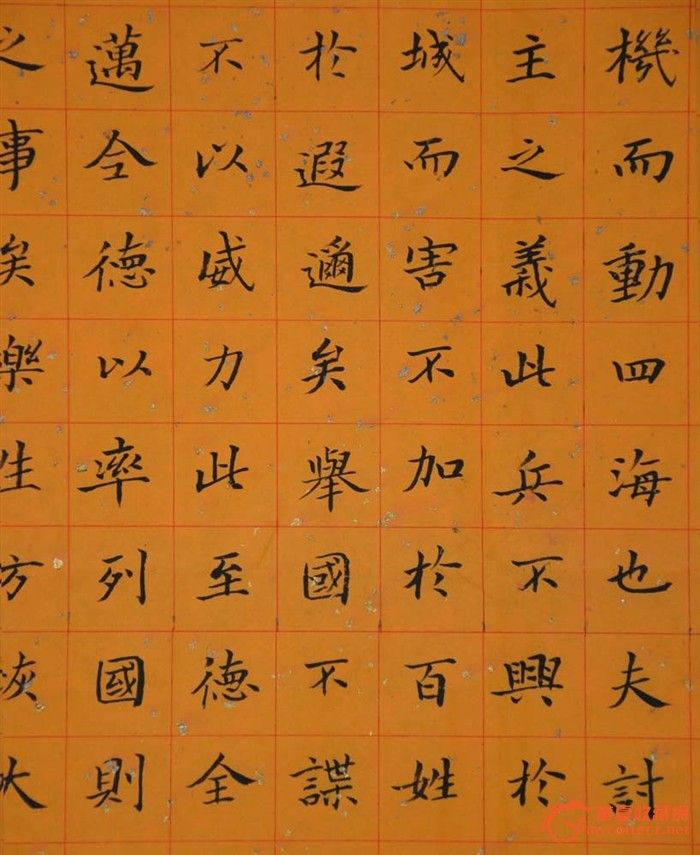 機而動四海也夫討
主之義此兵不興於
城而害不加於百姓
於遐邇矣舉國不謀
不以威力此至德全
邁令德以率列國則
之事矣樂生方恢大